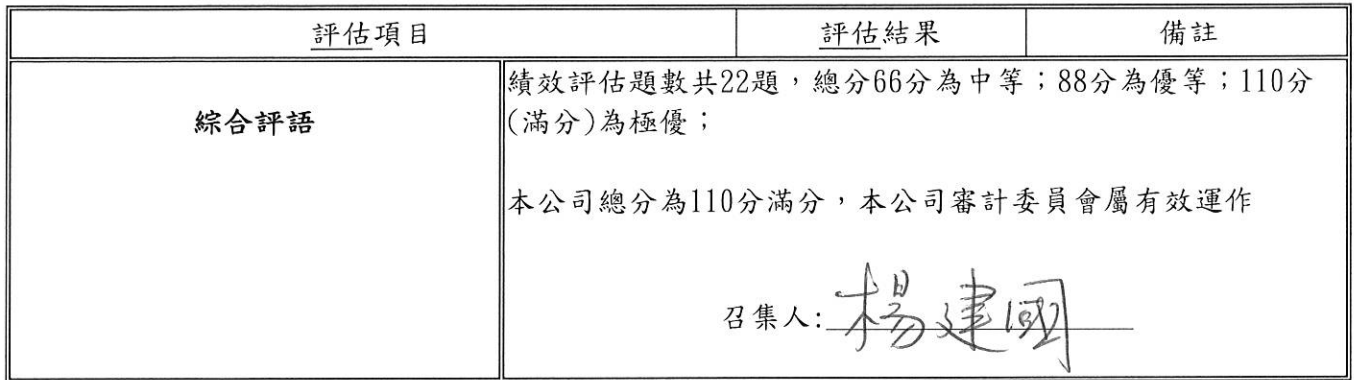 評估項目 評估結果 備註
綜合評語
績效評估題數共22題，總分66分為中等；88分為優等；110分
(滿分)為極優；
本公司總分為110分滿分，本公司審計委員會屬有效運作
召集人:楊建國